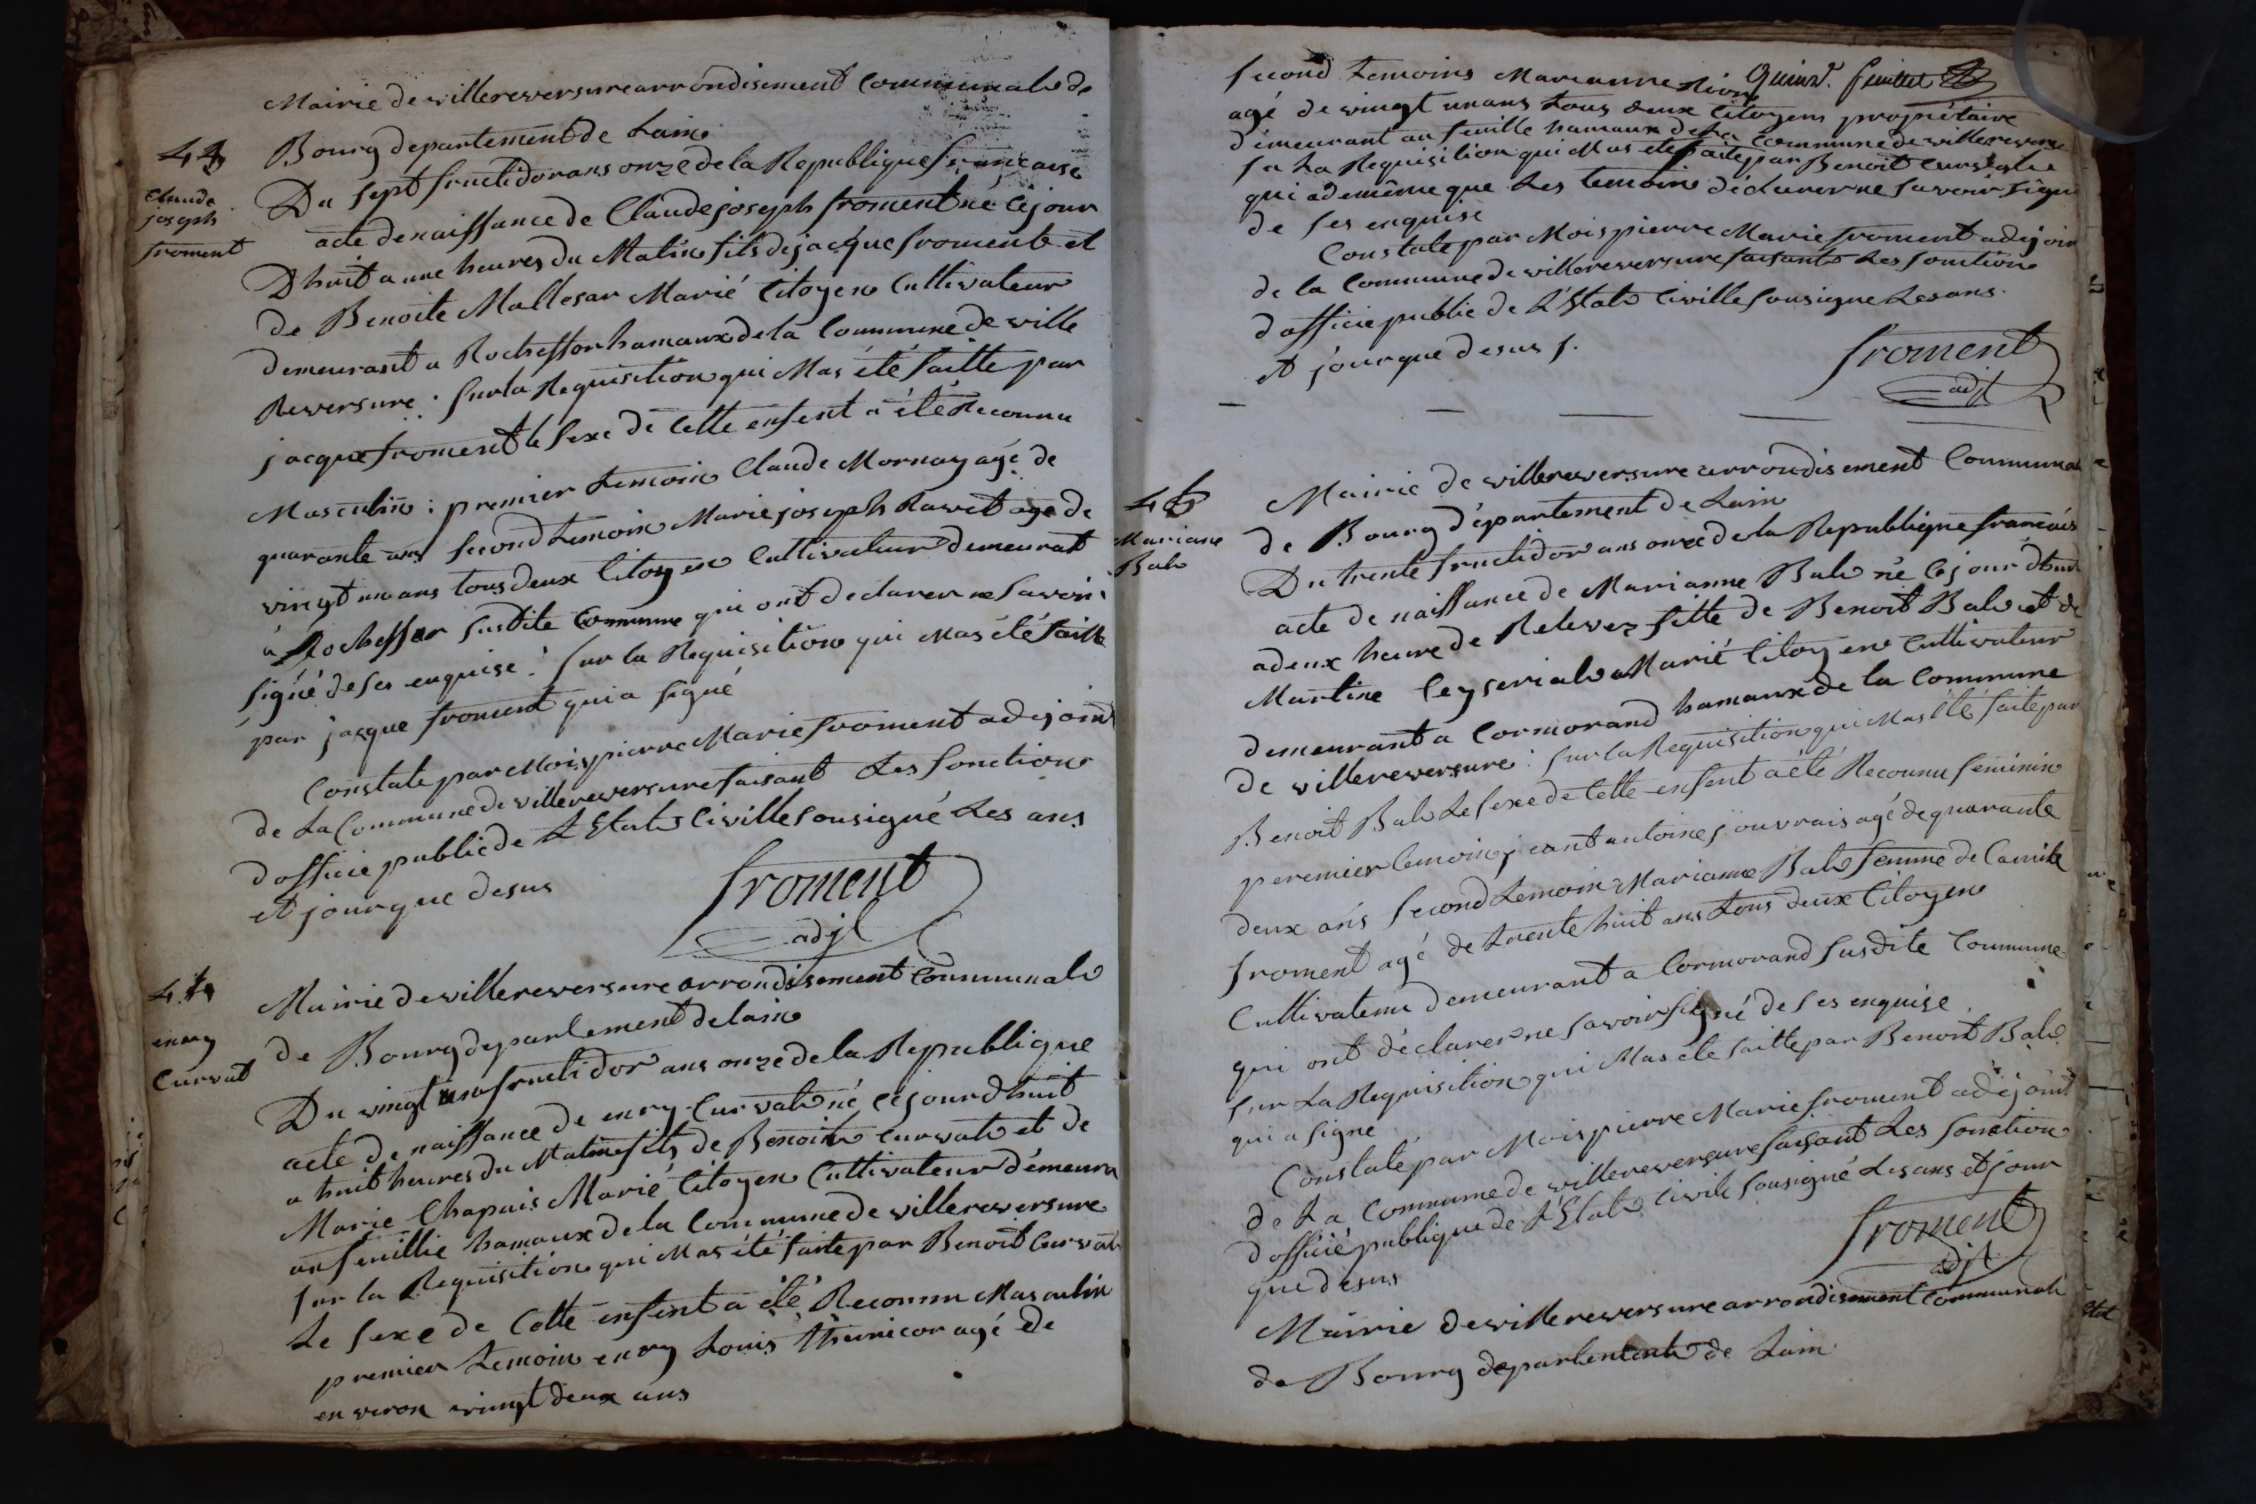 Mairie de villereversure arrondisement Communale de
Bourg departement de Lain
Du sept fructidor ans onze de la Republique francaise
Claude
joseph
froment
acte de naissance de Claude joseph froment né cejour
Dhuit a une heures du Matin fils de jacque froment et
de Benoite Mallesar Marié Citoyen Cultivateur
demeurant a Rocheffor hamaux de la Commune de ville
Reversure : sur la Requisition qui Mas été faitte par
jacque froment le sexe de cette enfent a été Reconnu
Masculin : premier temoin Claude Mornay agé de
quarante ans second temoin Marie joseph Ravet age de
vingt un ans tous deux Citoyen Cultivateur demeurant
a Rocheffor susdite Commune qui ont declarer ne savoir
signé de ses enquise : sur la Requisition qui Mas été faitte
par jacque froment qui a signé
Constate par Mois pierre Marie froment adejoint
de La Commune de villereversure faisant Les fonction
dofficie public de L'Etat Civille sousigné Les ans
et jour que desus
froment
adjt
Mairie de villereversure arrondisement Communale
de Bourg departement de lain
enry
Curvat
Du vingt un fructidor ans onze de la Republique
acte de naissance de enry Curvat né cejourdhuit
a huit heures du Matin fils de Benoit Curvat et de
Marie Chapuis Marié Citoyen Cultivateur démeura
au feuillie hamaux de la Commune de villereversure
sur la Requisition qui Mas été faite par Benoit Curvat
Le sexe de Cette enfent a été Reconnu Masculin
premier temoin enry Louis agé de
enveron vingt deux ans
feuillet
second temoins Marianne
agé de vingt un ans tous deux Citoyen propriétaire
démeurant au feuille hamaux de la Commune de villereversure
su La Requisition qui Mas été faite par Benoit Curvat
qui ademême que Les temoin déclarer ne savoir signe
de ses enquise
Constate par Mois pierre Marie froment adejoin
de la Commune de villereversure faisant Les fonction
dofficie public de L'Etat Civille sousigne Les ans
et jour que desus
froment
adjt
Mairie de villereversure arrondisement Communal
de Bourg département de Lain
Mariane
Bal
Du trente fructidor ans onze de la Republique francais
acte de naissance de Marianne Bal né cejour dhui
adeux heure de Relevez fille de Benoit Bal et de
Martine Ceyserial Marié Citoyen Cultivateur
demeurant a Cormorand hamaux de la Commune
de villereversure : sur la Requisition qui Mas été faite par
Benoit Bal Le sexe de Cette enfent a été Reconnu feminin
peremier temoin jeant antoine jouvrais agé de quarante
deux ans second temoin Marianne Bal femme de Camile
froment agé de trente huit ans tous deux Citoyen
Cultivateur demeurant a Cormorand susdite Commune
qui ont déclarer ne savoir signé de ses enquise
sur La Requisition qui Mas ete faitte par Benoit Bal
qui a signe
Constaté par Mois pierre Marie froment adejoint
de La Commune de villereversure faisant Les fonction
dofficié publique de L'Etat Civile sousigné Les ans et jour
que desus
froment
adjt
Mairie de villereversure arrondisement Communale
de Bourg departement de Lain